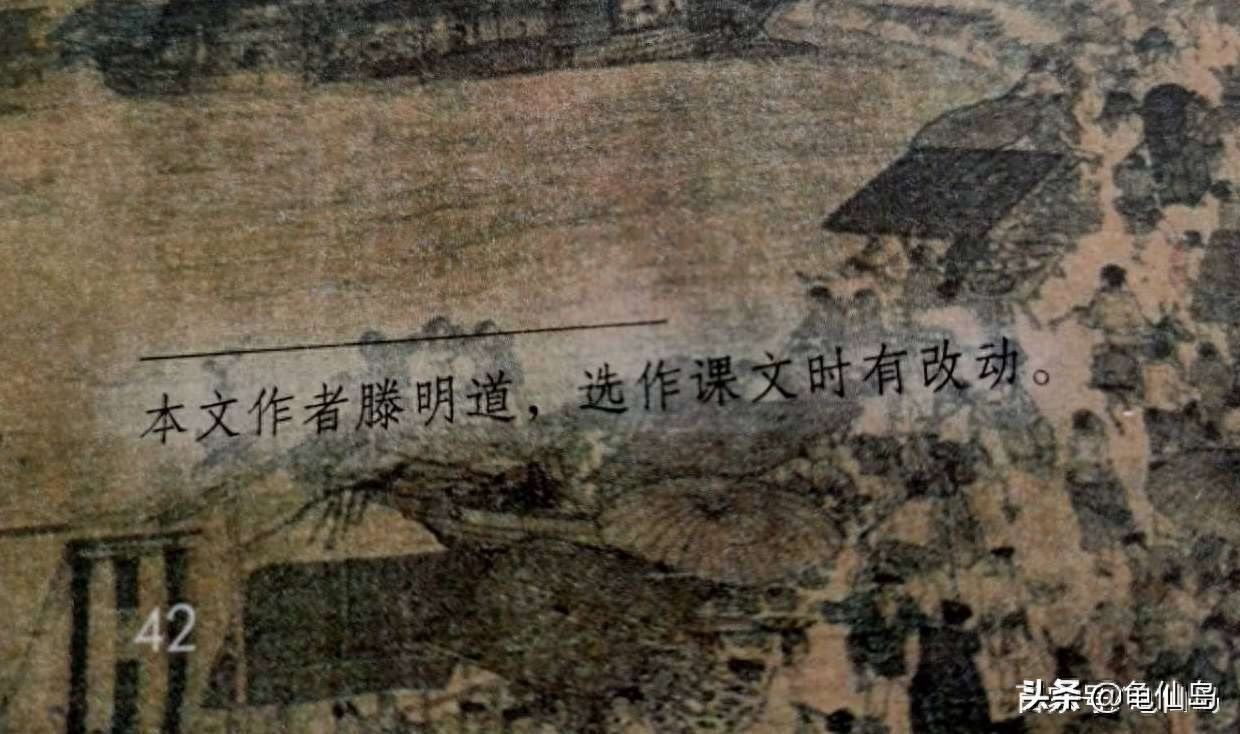 本文作者滕明道，选作课文时有改动。
42
头条@龟仙岛